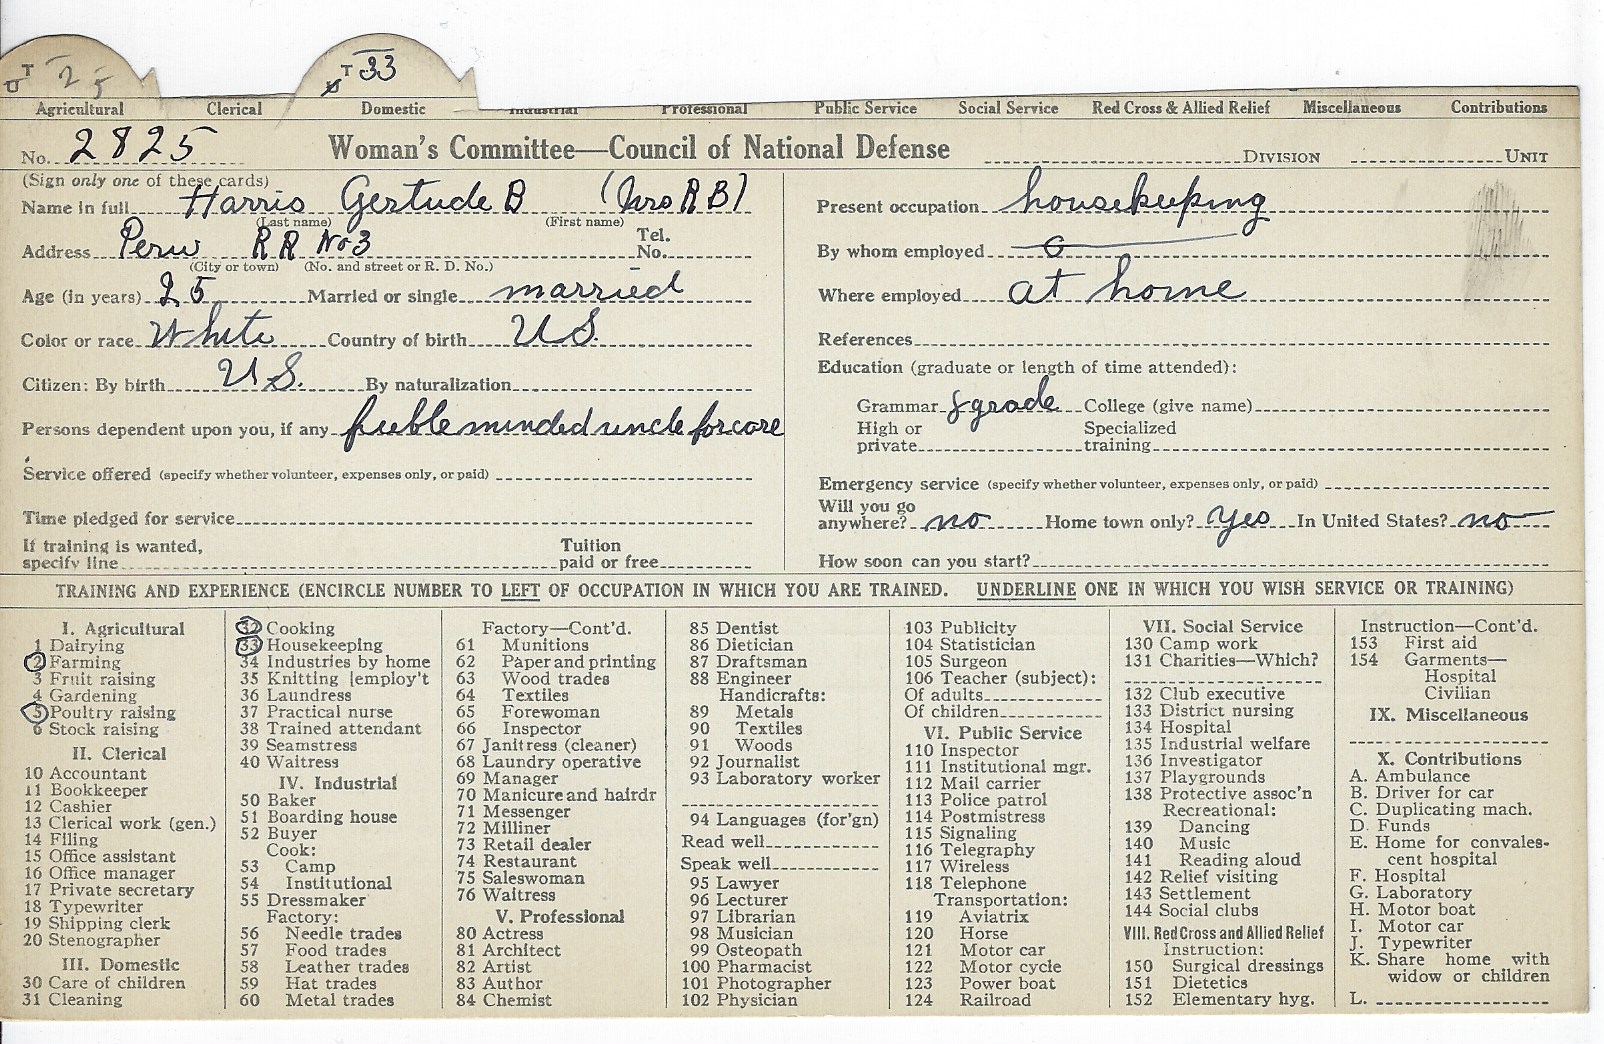 T 25
T 33
Agricultural Clerical Domestic Industrial Professional Public Service Social Service Red Cross & Allied Relief Miscellaneous Contributions
No. 2825 Woman's Committee—Council of National Defense DIVISION UNIT
(Sign only one of these cards)
Name in full Harris Gertrude B (Mrs R B)
(Last name) (First name)
Address Peru RR No 3 Tel. No.
(City or town) (No. and street or R. D. No.)
Age (in years) 25 Married or single married
Color or race White Country of birth U S.
Citizen: By birth U S. By naturalization
Persons dependent upon you, if any feeble minded uncle for care
Service offered (specify whether volunteer, expenses only, or paid)
Time pledged for service
If training is wanted, specify line Tuition paid or free
Present occupation housekeeping
By whom employed
Where employed at home
References
Education (graduate or length of time attended):
Grammar 8 grade College (give name)
High or private Specialized training
Emergency service (specify whether volunteer, expenses only, or paid)
Will you go anywhere? no Home town only? yes In United States? no
How soon can you start?
TRAINING AND EXPERIENCE (ENCIRCLE NUMBER TO LEFT OF OCCUPATION IN WHICH YOU ARE TRAINED. UNDERLINE ONE IN WHICH YOU WISH SERVICE OR TRAINING)
I. Agricultural
1 Dairying
2 Farming
3 Fruit raising
4 Gardening
5 Poultry raising
6 Stock raising
II. Clerical
10 Accountant
11 Bookkeeper
12 Cashier
13 Clerical work (gen.)
14 Filing
15 Office assistant
16 Office manager
17 Private secretary
18 Typewriter
19 Shipping clerk
20 Stenographer
III. Domestic
30 Care of children
31 Cleaning
32 Cooking
33 Housekeeping
34 Industries by home
35 Knitting [employ't
36 Laundress
37 Practical nurse
38 Trained attendant
39 Seamstress
40 Waitress
IV. Industrial
50 Baker
51 Boarding house
52 Buyer
Cook:
53 Camp
54 Institutional
55 Dressmaker
Factory:
56 Needle trades
57 Food trades
58 Leather trades
59 Hat trades
60 Metal trades
Factory—Cont'd.
61 Munitions
62 Paper and printing
63 Wood trades
64 Textiles
65 Forewoman
66 Inspector
67 Janitress (cleaner)
68 Laundry operative
69 Manager
70 Manicure and hairdr
71 Messenger
72 Milliner
73 Retail dealer
74 Restaurant
75 Saleswoman
76 Waitress
V. Professional
80 Actress
81 Architect
82 Artist
83 Author
84 Chemist
85 Dentist
86 Dietician
87 Draftsman
88 Engineer
Handicrafts:
89 Metals
90 Textiles
91 Woods
92 Journalist
93 Laboratory worker
94 Languages (for'gn)
Read well
Speak well
95 Lawyer
96 Lecturer
97 Librarian
98 Musician
99 Osteopath
100 Pharmacist
101 Photographer
102 Physician
103 Publicity
104 Statistician
105 Surgeon
106 Teacher (subject):
Of adults
Of children
VI. Public Service
110 Inspector
111 Institutional mgr.
112 Mail carrier
113 Police patrol
114 Postmistress
115 Signaling
116 Telegraphy
117 Wireless
118 Telephone
Transportation:
119 Aviatrix
120 Horse
121 Motor car
122 Motor cycle
123 Power boat
124 Railroad
VII. Social Service
130 Camp work
131 Charities—Which?
132 Club executive
133 District nursing
134 Hospital
135 Industrial welfare
136 Investigator
137 Playgrounds
138 Protective assoc'n
Recreational:
139 Dancing
140 Music
141 Reading aloud
142 Relief visiting
143 Settlement
144 Social clubs
VIII. Red Cross and Allied Relief
Instruction:
150 Surgical dressings
151 Dietetics
152 Elementary hyg.
Instruction—Cont'd.
153 First aid
154 Garments—
Hospital
Civilian
IX. Miscellaneous
X. Contributions
A. Ambulance
B. Driver for car
C. Duplicating mach.
D. Funds
E. Home for convales-
cent hospital
F. Hospital
G. Laboratory
H. Motor boat
I. Motor car
J. Typewriter
K. Share home with
widow or children
L.